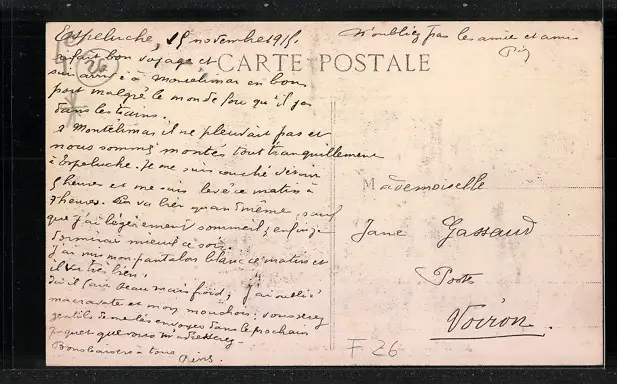 Espeluche, 15 novembre 1915.
N'oubliez pas les amie et amis
26
CARTE POSTALE
ai fait bon voyage et
suis arrivé à Montélimar en bon
port malgré le monde fou qu'il y a
dans les trains.
à Montélimar il ne pleuvait pas et
nous sommes montés tout tranquillement
à Espeluche. Je me suis couché
5 heures et me suis levé ce matin à
7 heures. va bien quand même, sauf
que j'ai légèrement sommeil; enfin je
dormirai mieux ce soir.
J'ai mis mon pantalon blanc ce matin et
il va très bien.
il fait beau mais froid; j'ai oublié
ma cravate et mon mouchoir; vous serez
gentils de me les envoyer dans le prochain
paquet que vous m'adresserez.
Bons baisers à tous
Mademoiselle
Jane Gassaud
Poste
Voiron.
F 26